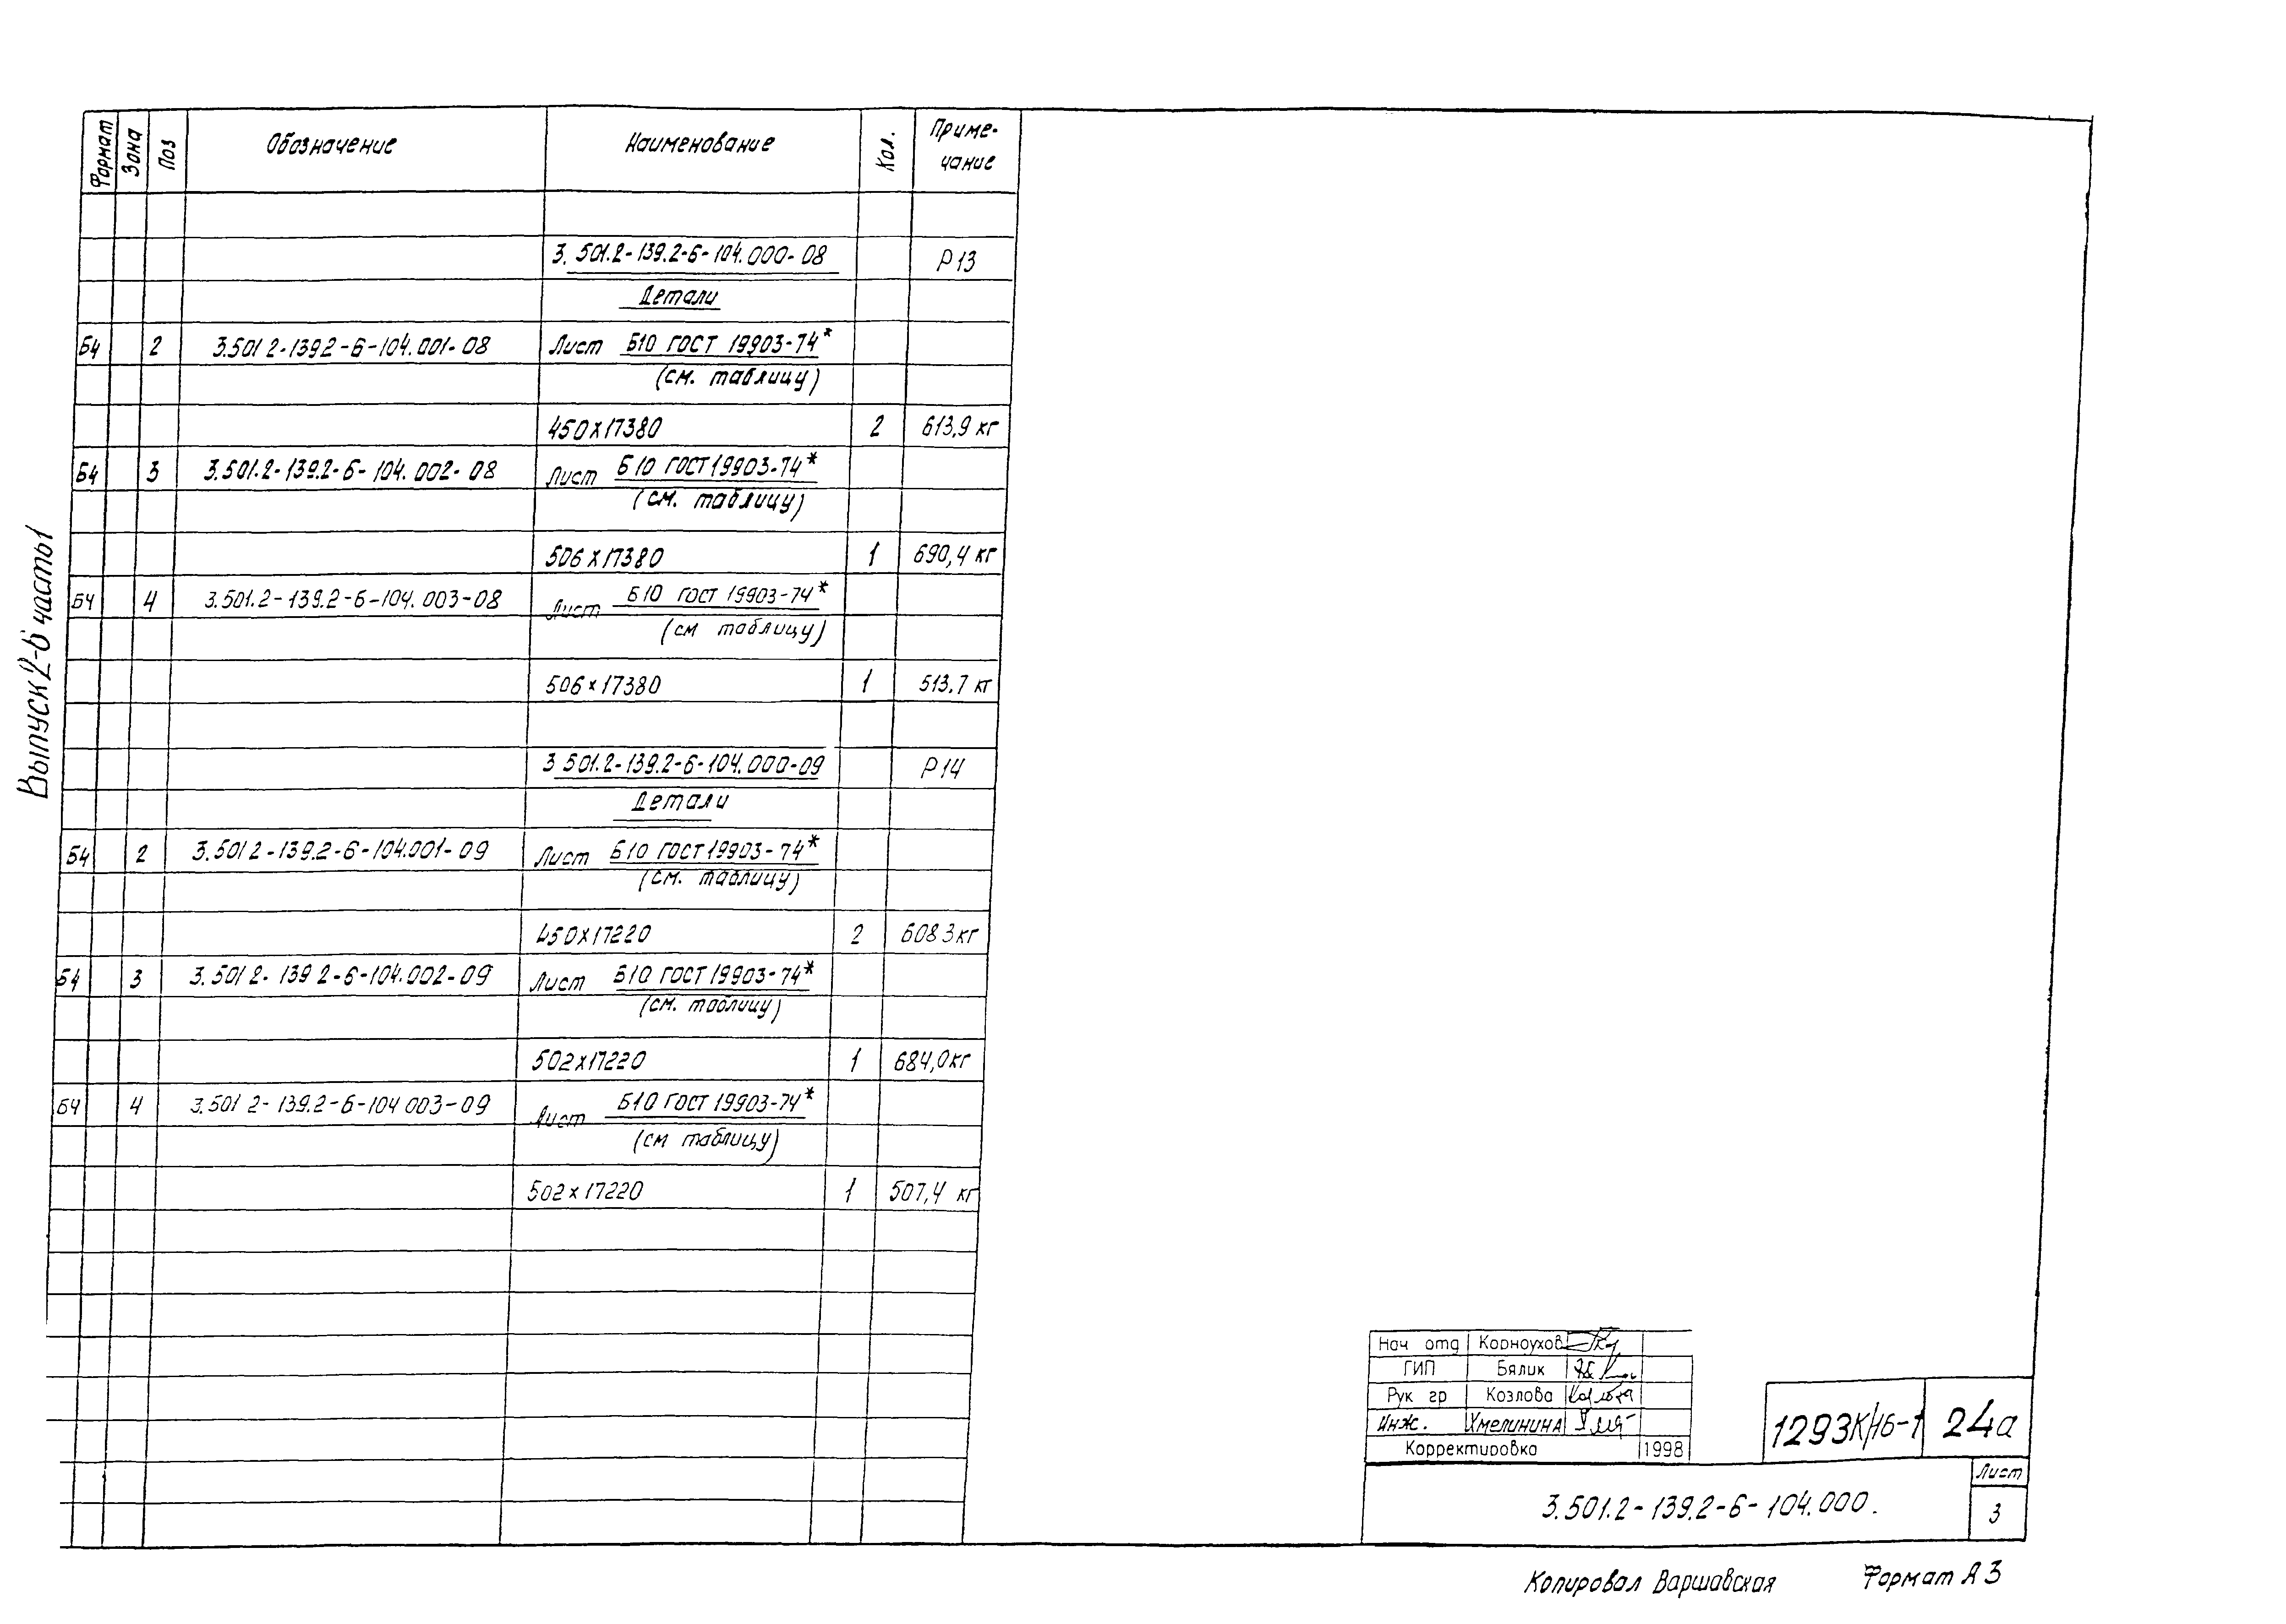 Выпуск 2-6 часть 1
Формат Зона Поз Обозначение Наименование Кол. Приме-
чание
3.501.2-139.2-6-104.000-08 Р13
Детали
Б4 2 3.501 2-139 2-6-104.001-08 Лист Б10 ГОСТ 19903-74*
(см. таблицу)
450х17380 2 613,9 кг
Б4 3 3.501.2-139.2-6-104.002-08 Лист Б10 ГОСТ 19903-74*
(см. таблицу)
506х17380 1 690,4 кг
Б4 4 3.501.2-139.2-6-104.003-08 Лист Б10 ГОСТ 19903-74*
(см таблицу)
506х17380 1 513.7 кг
3 501.2-139.2-6-104.000-09 Р14
Детали
Б4 2 3.501 2-139.2-6-104.001-09 Лист Б10 ГОСТ 19903-74*
(см. таблицу)
450х17220 2 608 3 кг
Б4 3 3.501 2-139 2-6-104.002-09 Лист Б10 ГОСТ 19903-74*
(см. таблицу)
502х17220 1 684,0 кг
Б4 4 3.501 2-139.2-6-104 003-09 Лист Б10 ГОСТ 19903-74*
(см таблицу)
502х17220 1 507,4 кг
Нач отд Корноухов
ГИП Бялик
Рук гр Козлова
Инж. Хмелинина
Корректировка 1998
24а
Лист
3.501.2-139.2-6-104.000. 3
Копировал Варшавская Формат А3